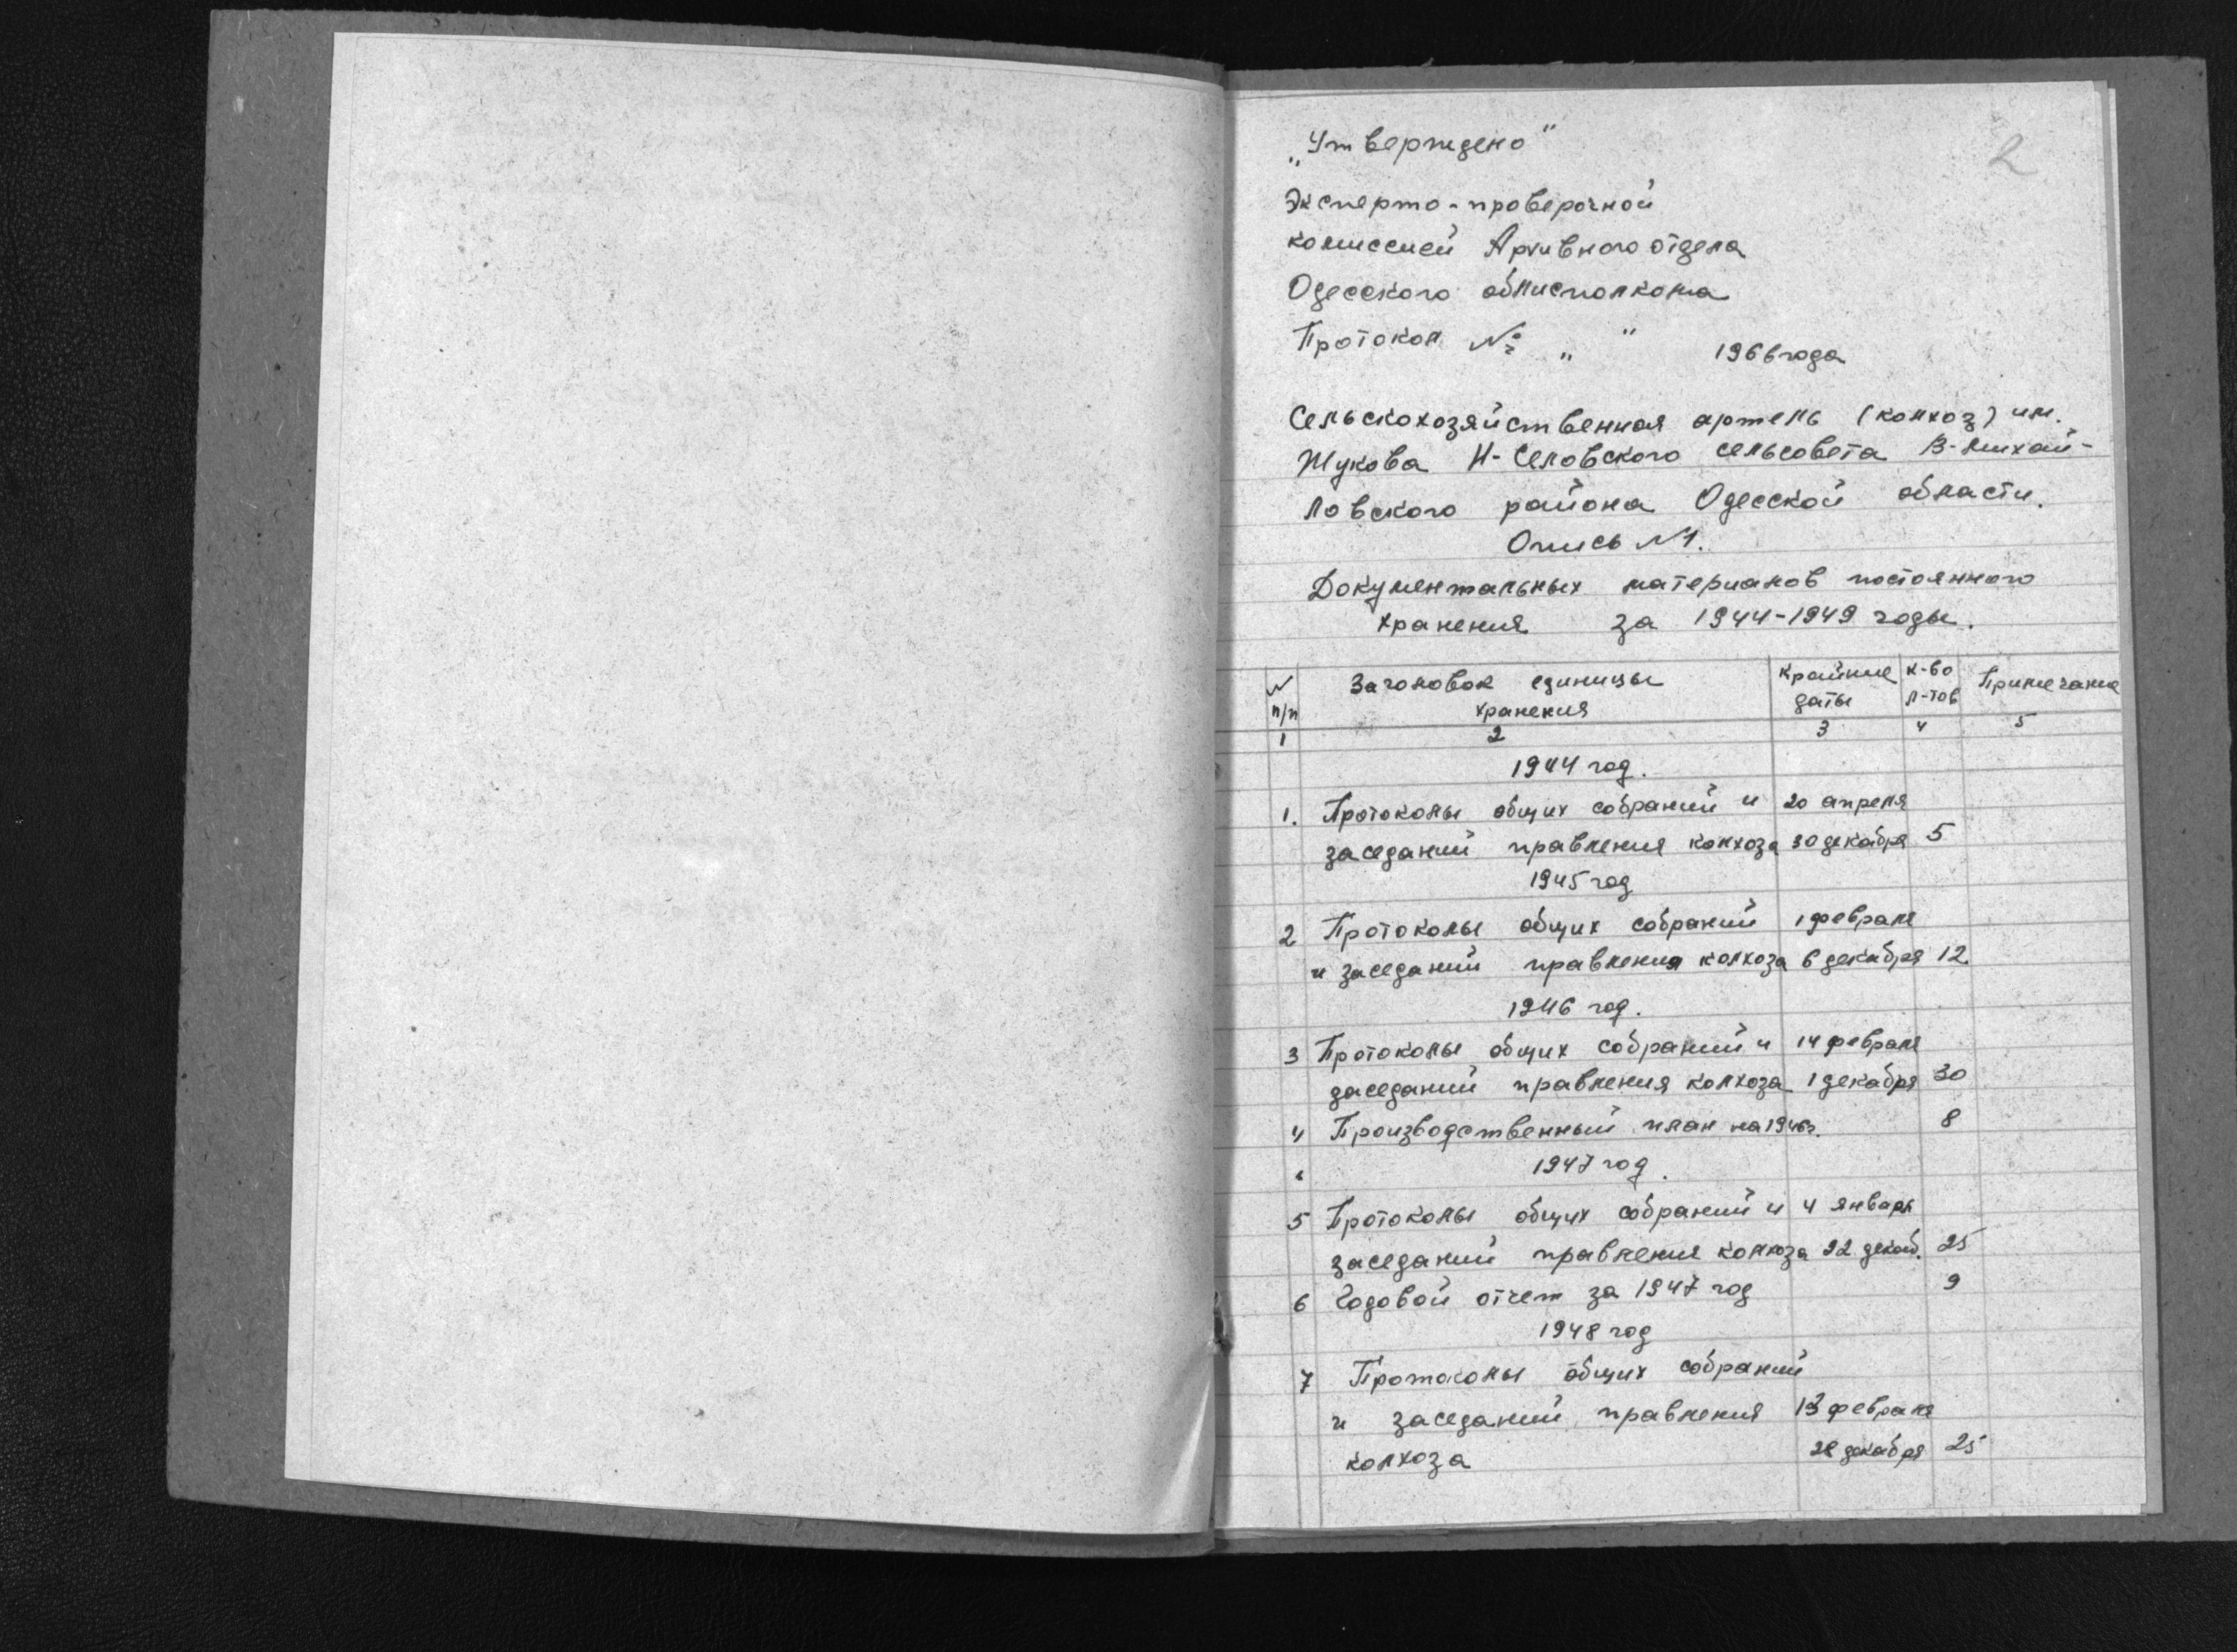 2
„Утверждено"
Эксперто-проверочной
комиссией Архивного отдела
Одесского облисполкома
Протокол № „ " 1966 года
Сельскохозяйственная артель (колхоз) им.
Жукова Н-Селовского сельсовета В-Михай-
ловского района Одесской области.
Опись №1.
Документальных материалов постоянного
хранения за 1944-1949 годы.
№ Заголовок единицы Крайние К-во Примечание
п/п хранения даты л-тов
1 2 3 4 5
1944 год.
1. Протоколы общих собраний и 20 апреля
заседаний правления колхоза 30 декабря 5
1945 год
2 Протоколы общих собраний 1 февраля
и заседаний правления колхоза 6 декабря 12
1946 год.
3 Протоколы общих собраний и 14 февраля
заседаний правления колхоза 1 декабря 30
4 Производственный план на 1946г. 8
1947 год.
5 Протоколы общих собраний и 4 января
заседаний правления колхоза 22 декаб. 25
6 Годовой отчет за 1947 год 9
1948 год
7 Протоколы общих собраний
и заседаний правления 13 февраля
колхоза 28 декабря 25